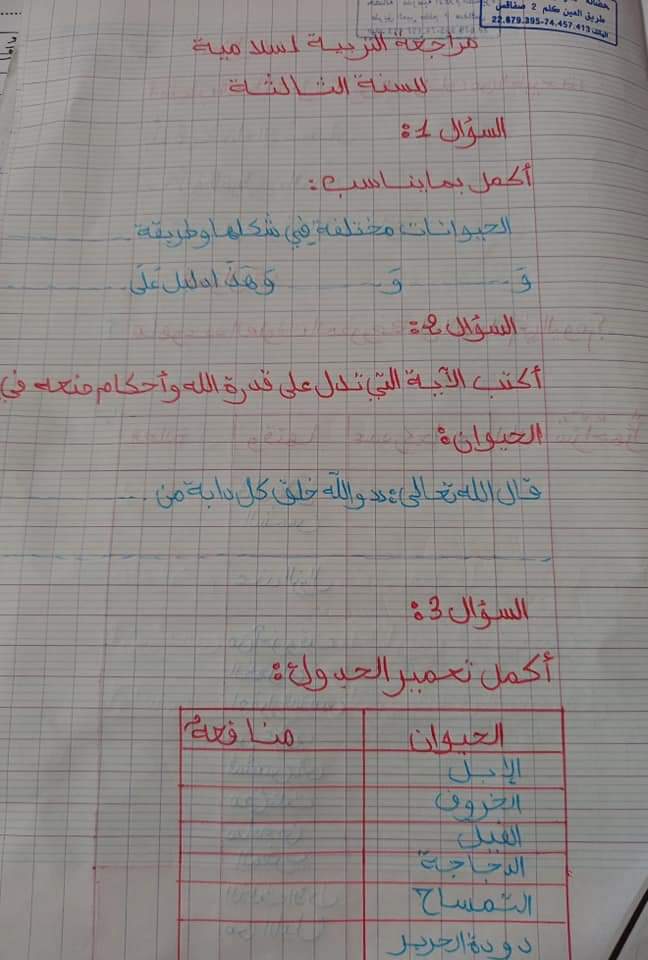 طريق العين كلم 2 صفاقس
الهاتف 22.679.395-74.457.413
مراجعة التربية اسلامية
للسنة الثالثة
السؤال 1:
أكمل بما يناسب:
الحيوانات مختلفة في شكلها وطريقة
وَ وَ وَهَذَا دليل عَلَى
السؤال 2:
أكتب الآية التي تدل على قدرة الله وأحكام صنعه في
الحيوان:
قال الله تعالى: "والله خلق كل دابة من
السؤال 3:
أكمل تعمير الجدول:
الحيوان منافعهُ
الإبل
الخروف
الفيل
الدجاجة
التمساح
دودة الحرير